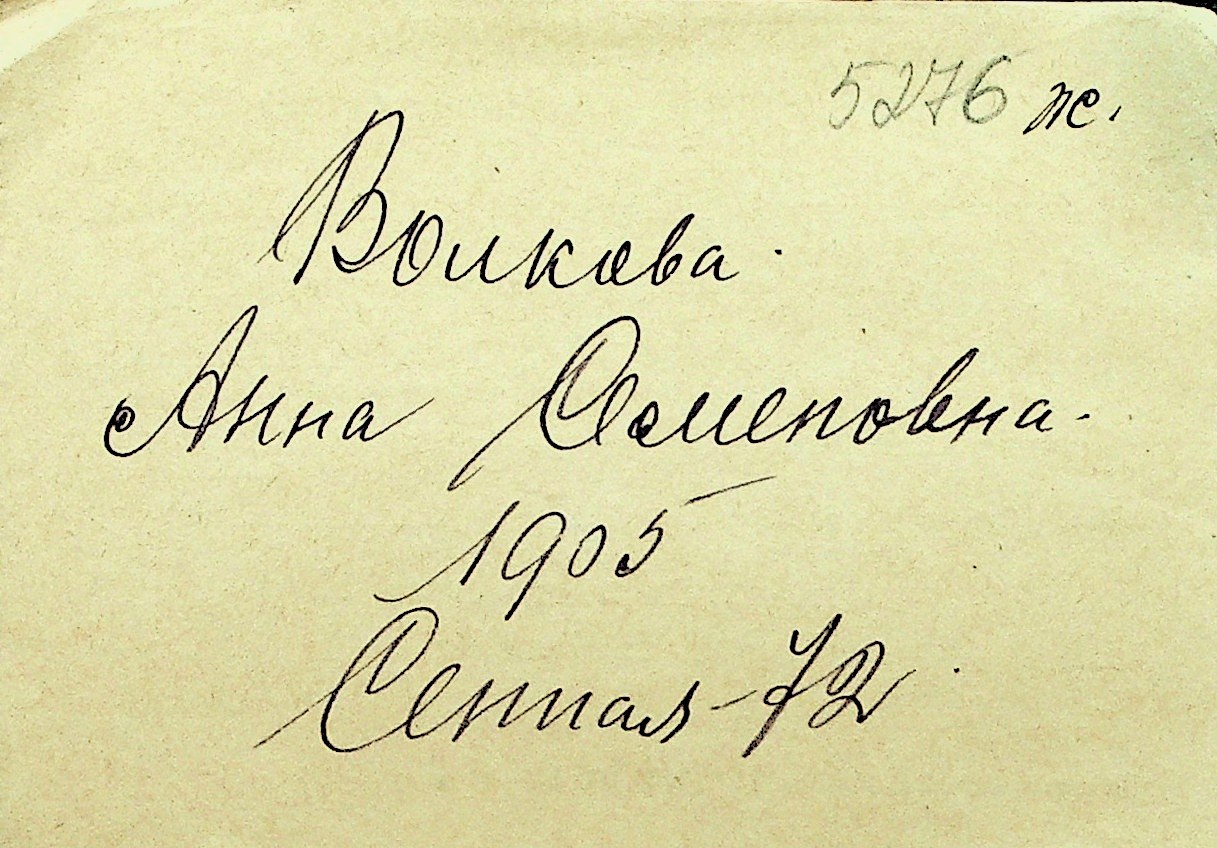 5276 ж.
Волкова.
Анна Семеновна.
1905
Сенная-72.